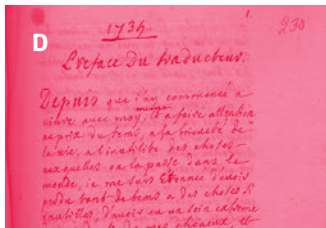 1.
D
1735
230
Preface du traducteur.
Depuis que j'ay commencé a
vivre avec moy, et a faire attention
au prix du tems, a la brieveté de
la vie, a l'inutilité des choses
auxquelles on la passe dans le
monde, je me suis étonnée d'avoir
perdu tant de tems a des choses si
inutilles, d'avoir eu un soin extreme
de mes cheveux, et